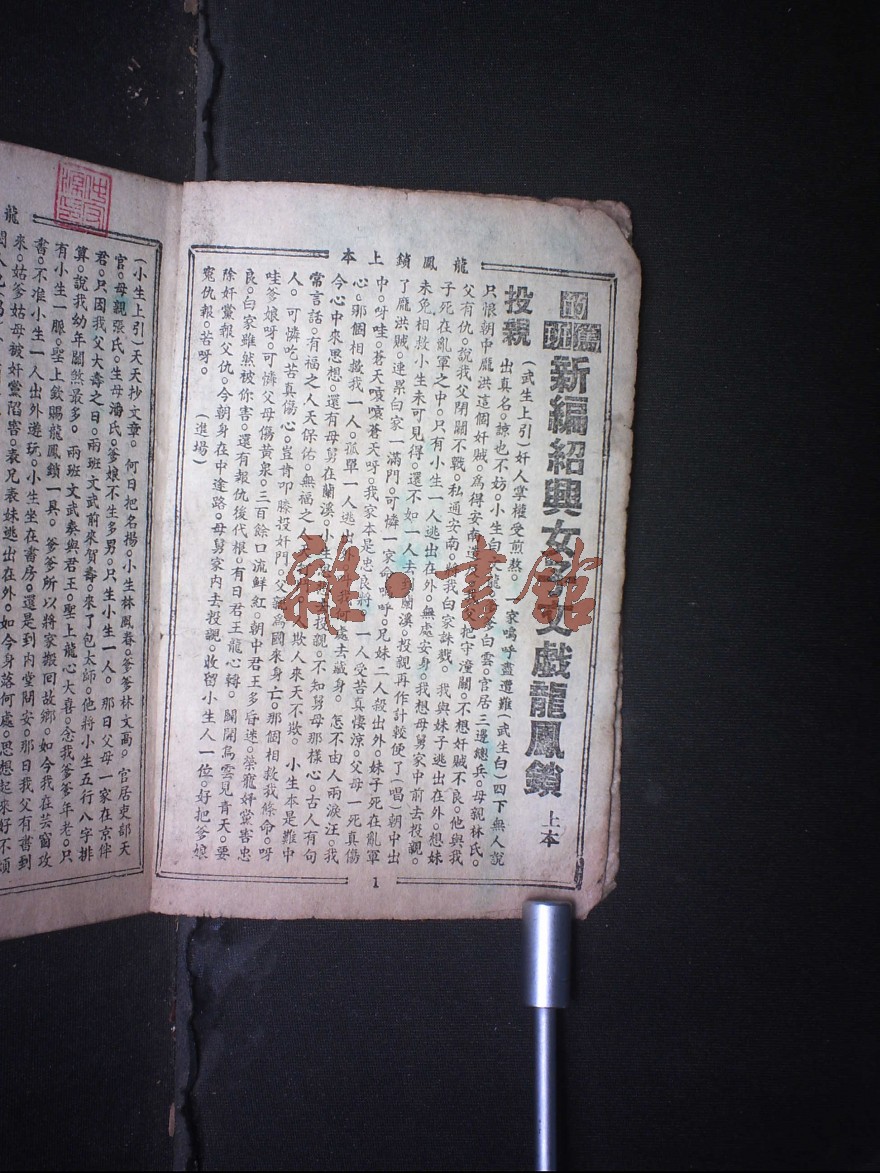 龍鳳鎖上本
的篤班
新編紹興女子文戲龍鳳鎖 上本
投親 (武生上引)奸人掌權受煎熬。一家嗚呼盡遭難(武生白)四下無人說
出真名。諒也不妨。小生白 龍。 爹白雲。官居三邊總兵。母親林氏。
只恨朝中龐洪這個奸賊。為得安南造 父把守潼關。不想奸賊不良。他與我
父有仇。說我父閉關不戰。私通安南。 我白家誅戮。我與妹子逃出在外。想妹
子死在亂軍之中。只有小生一人逃出在外。無處安身。我想母舅家中前去投親。
未免相救小生未可見得。還不如一人去 蘭溪。投親再作計較便了(唱)朝中出
了龐洪賊。連累白家一滿門。可憐一家命嗚呼。兄妹二人殺出外。妹子死在亂軍
中。呀哇。蒼天噯噯蒼天呀。我家本是忠良將 一人受苦真悽涼。父母一死真傷
心。那個相救我一人。孤單一人逃出外 何處去藏身。怎不由人兩淚汪。我
今心中來思想。還有母舅在蘭溪。小生 投親。不知舅母那樣心。古人有句
常言話。有福之人天保佑。無福之人 人欺人來天不欺。小生本是難中
人。可憐吃苦真傷心。豈肯叩膝投奸門。父親為國來身亡。那個相救我條命。呀
哇爹娘呀。可憐父母傷黃泉。三百餘口流鮮紅。朝中君王多昏迷。榮寵奸黨害忠
良。白家雖然被你害。還有報仇後代根。有日君王龍心轉。關開烏雲見青天。要
除奸黨報父仇。今朝身在中途路。母舅家內去投親。收留小生人一位。好把爹娘
冤仇報。苦呀。 (進場)
1
龍
(小生上引)天天抄文章。何日把名揚。小生林鳳春。爹爹林文高。官居吏部天
官。母親張氏。生母潘氏。爹娘不生多男。只生小生一人。那日父母一家在京伴
君。只因我父大壽之日。兩班文武前來賀壽。來了包太師。他將小生五行八字排
算。說我幼年關煞最多。兩班文武奏與君王。聖上龍心大喜。念我爹爹年老。只
有小生一脈。聖上欽賜龍鳳鎖一具。爹爹所以將家搬回故鄉。如今我在芸窗攻
書。不准小生一人出外遊玩。小生坐在書房。還是到內堂問安。那日我父有書到
來。姑爹姑母被奸黨陷害。表兄表妹逃出在外。如今身落何處。思想起來好不煩
雜·書館